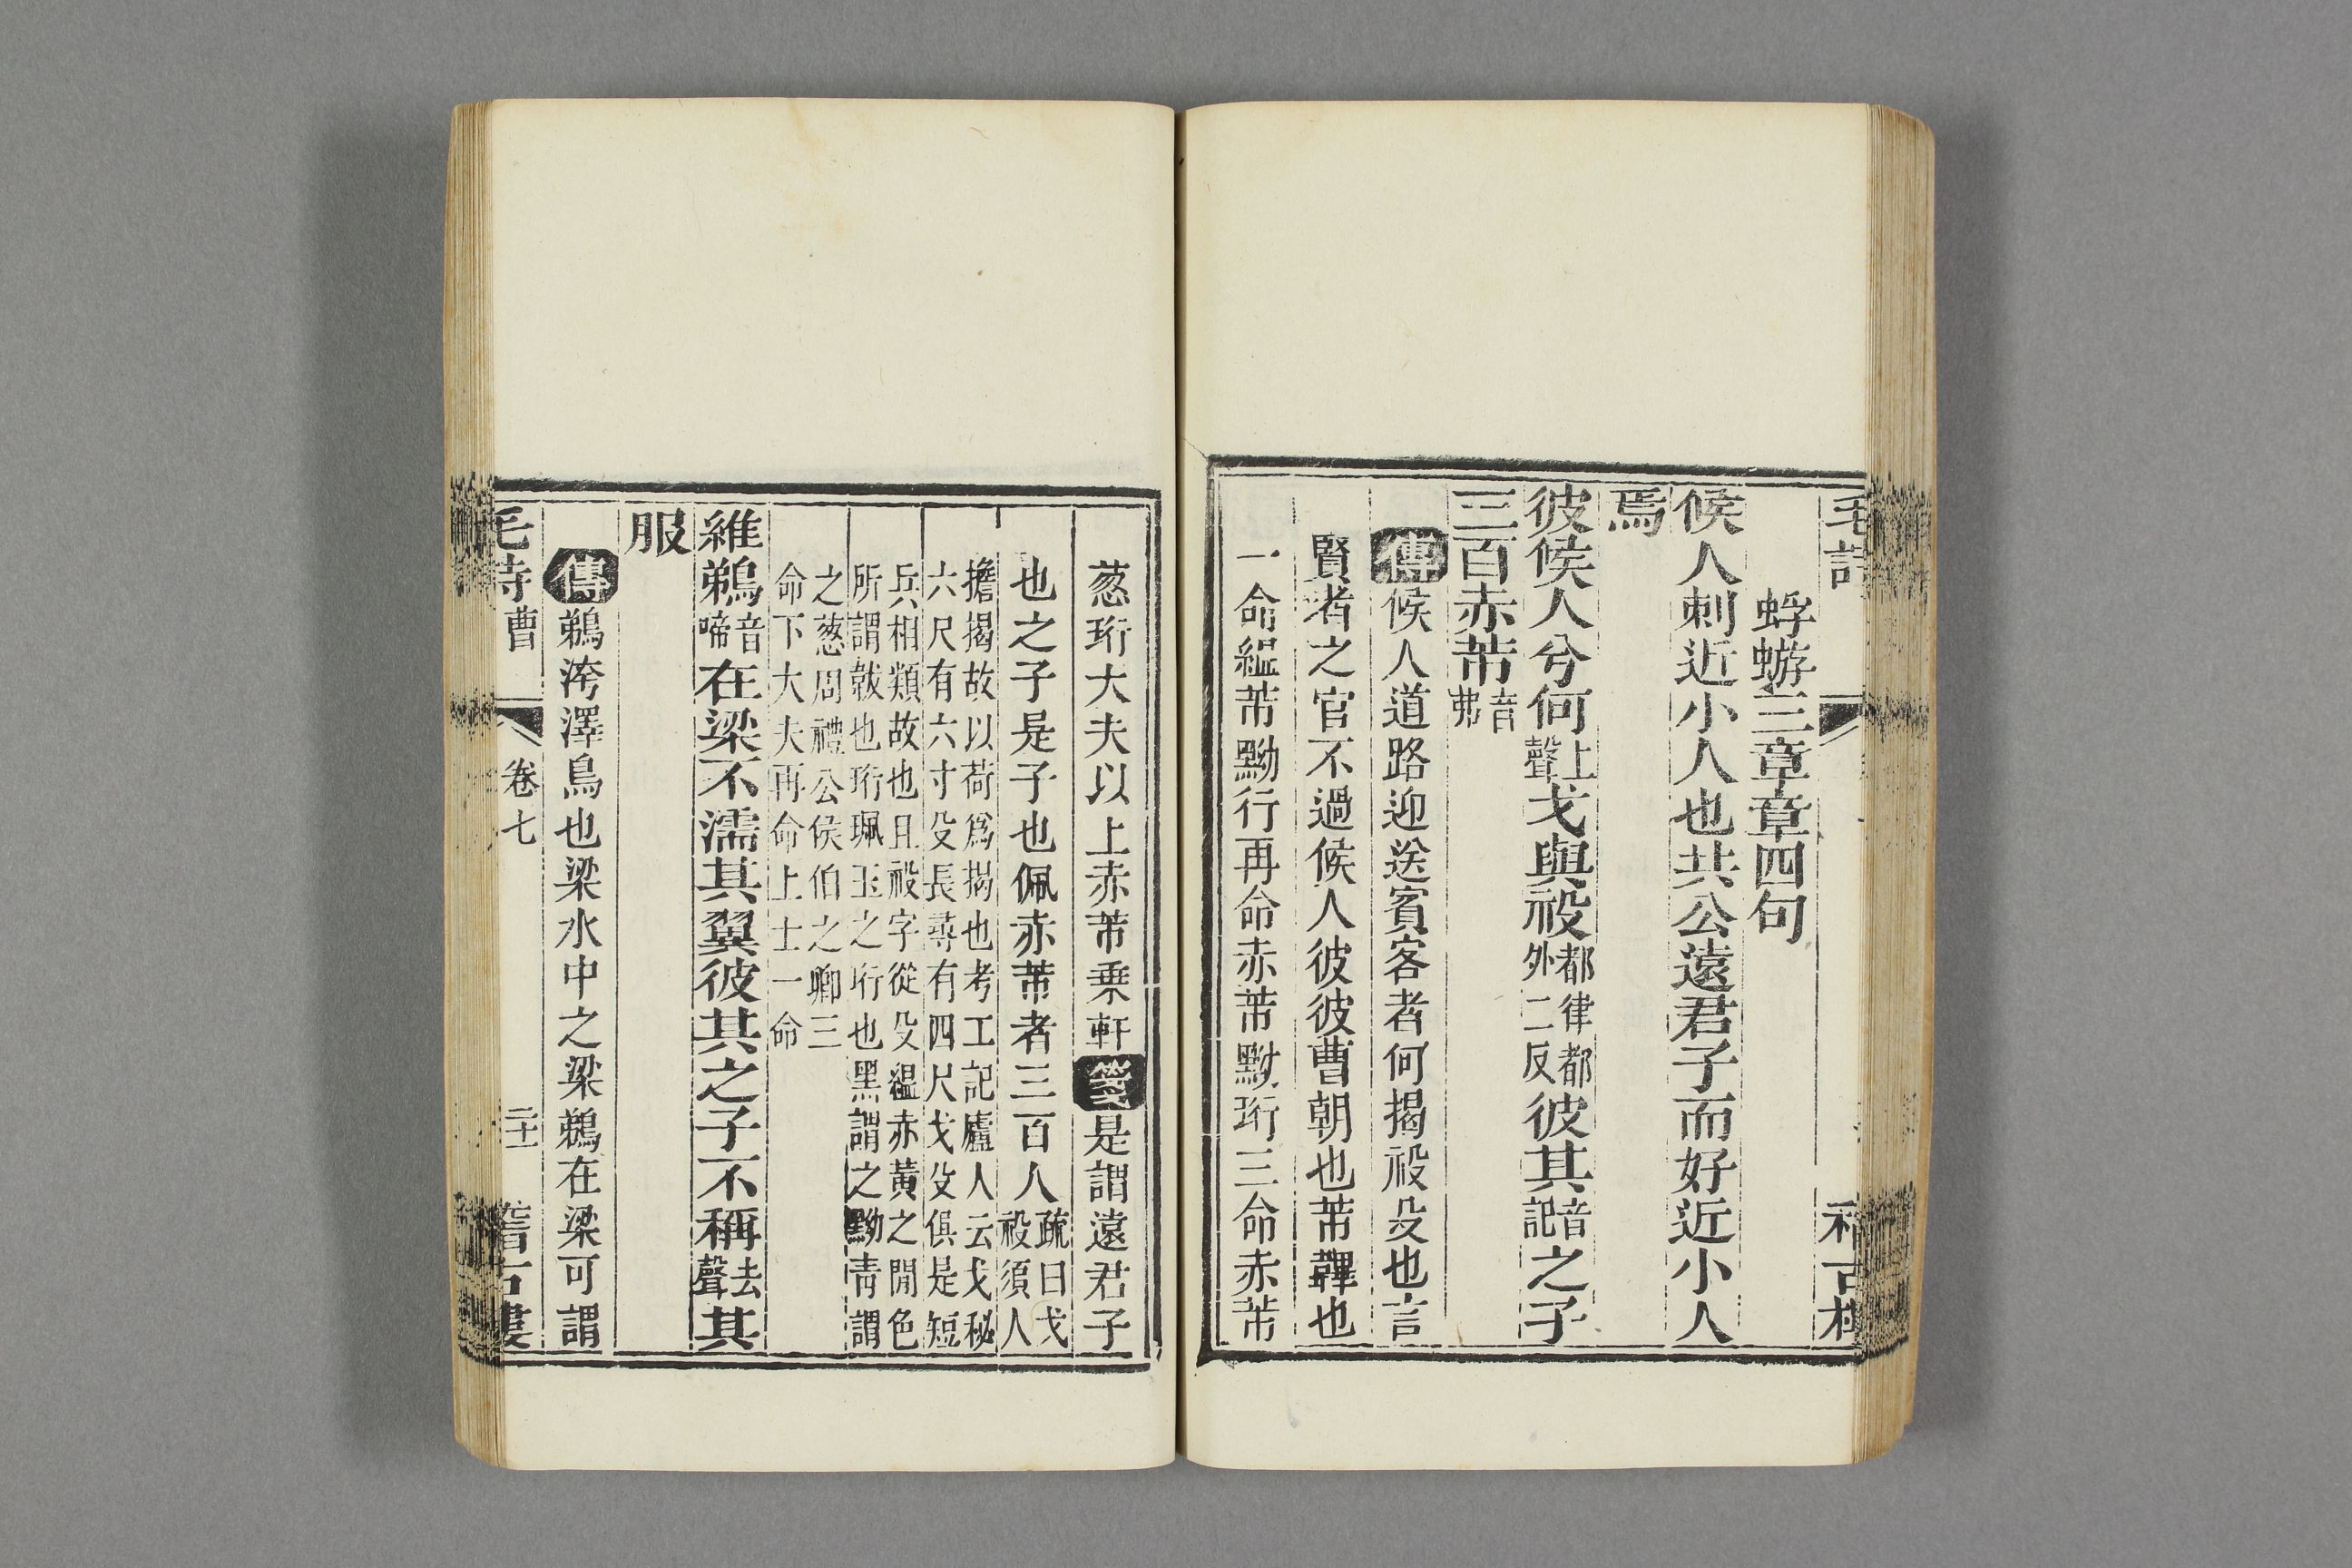 毛詩
蜉蝣三章章四句
候人刺近小人也共公遠君子而好近小人
焉
彼候人兮何上聲戈與祋都律都外二反彼其音記之子
三百赤芾音弗
傳候人道路迎送賓客者何揭祋殳也言
賢者之官不過候人彼彼曹朝也芾韠也
一命縕芾黝珩再命赤芾黝珩三命赤芾
葱珩大夫以上赤芾乗軒箋是謂遠君子
也之子是子也佩赤芾者三百人疏曰戈祋須人
擔揭故以荷爲揭也考工記廬人云戈柲
六尺有六寸殳長尋有四尺戈殳俱是短
兵相類故也且祋字從殳縕赤黃之閒色
所謂韍也珩珮玉之珩也黑謂之黝青謂
之葱周禮公侯伯之卿三
命下大夫再命上士一命
維鵜音啼在梁不濡其翼彼其之子不稱去聲其
服
傳鵜洿澤鳥也梁水中之梁鵜在梁可謂
毛詩曹 卷七 二十一 稽古樓